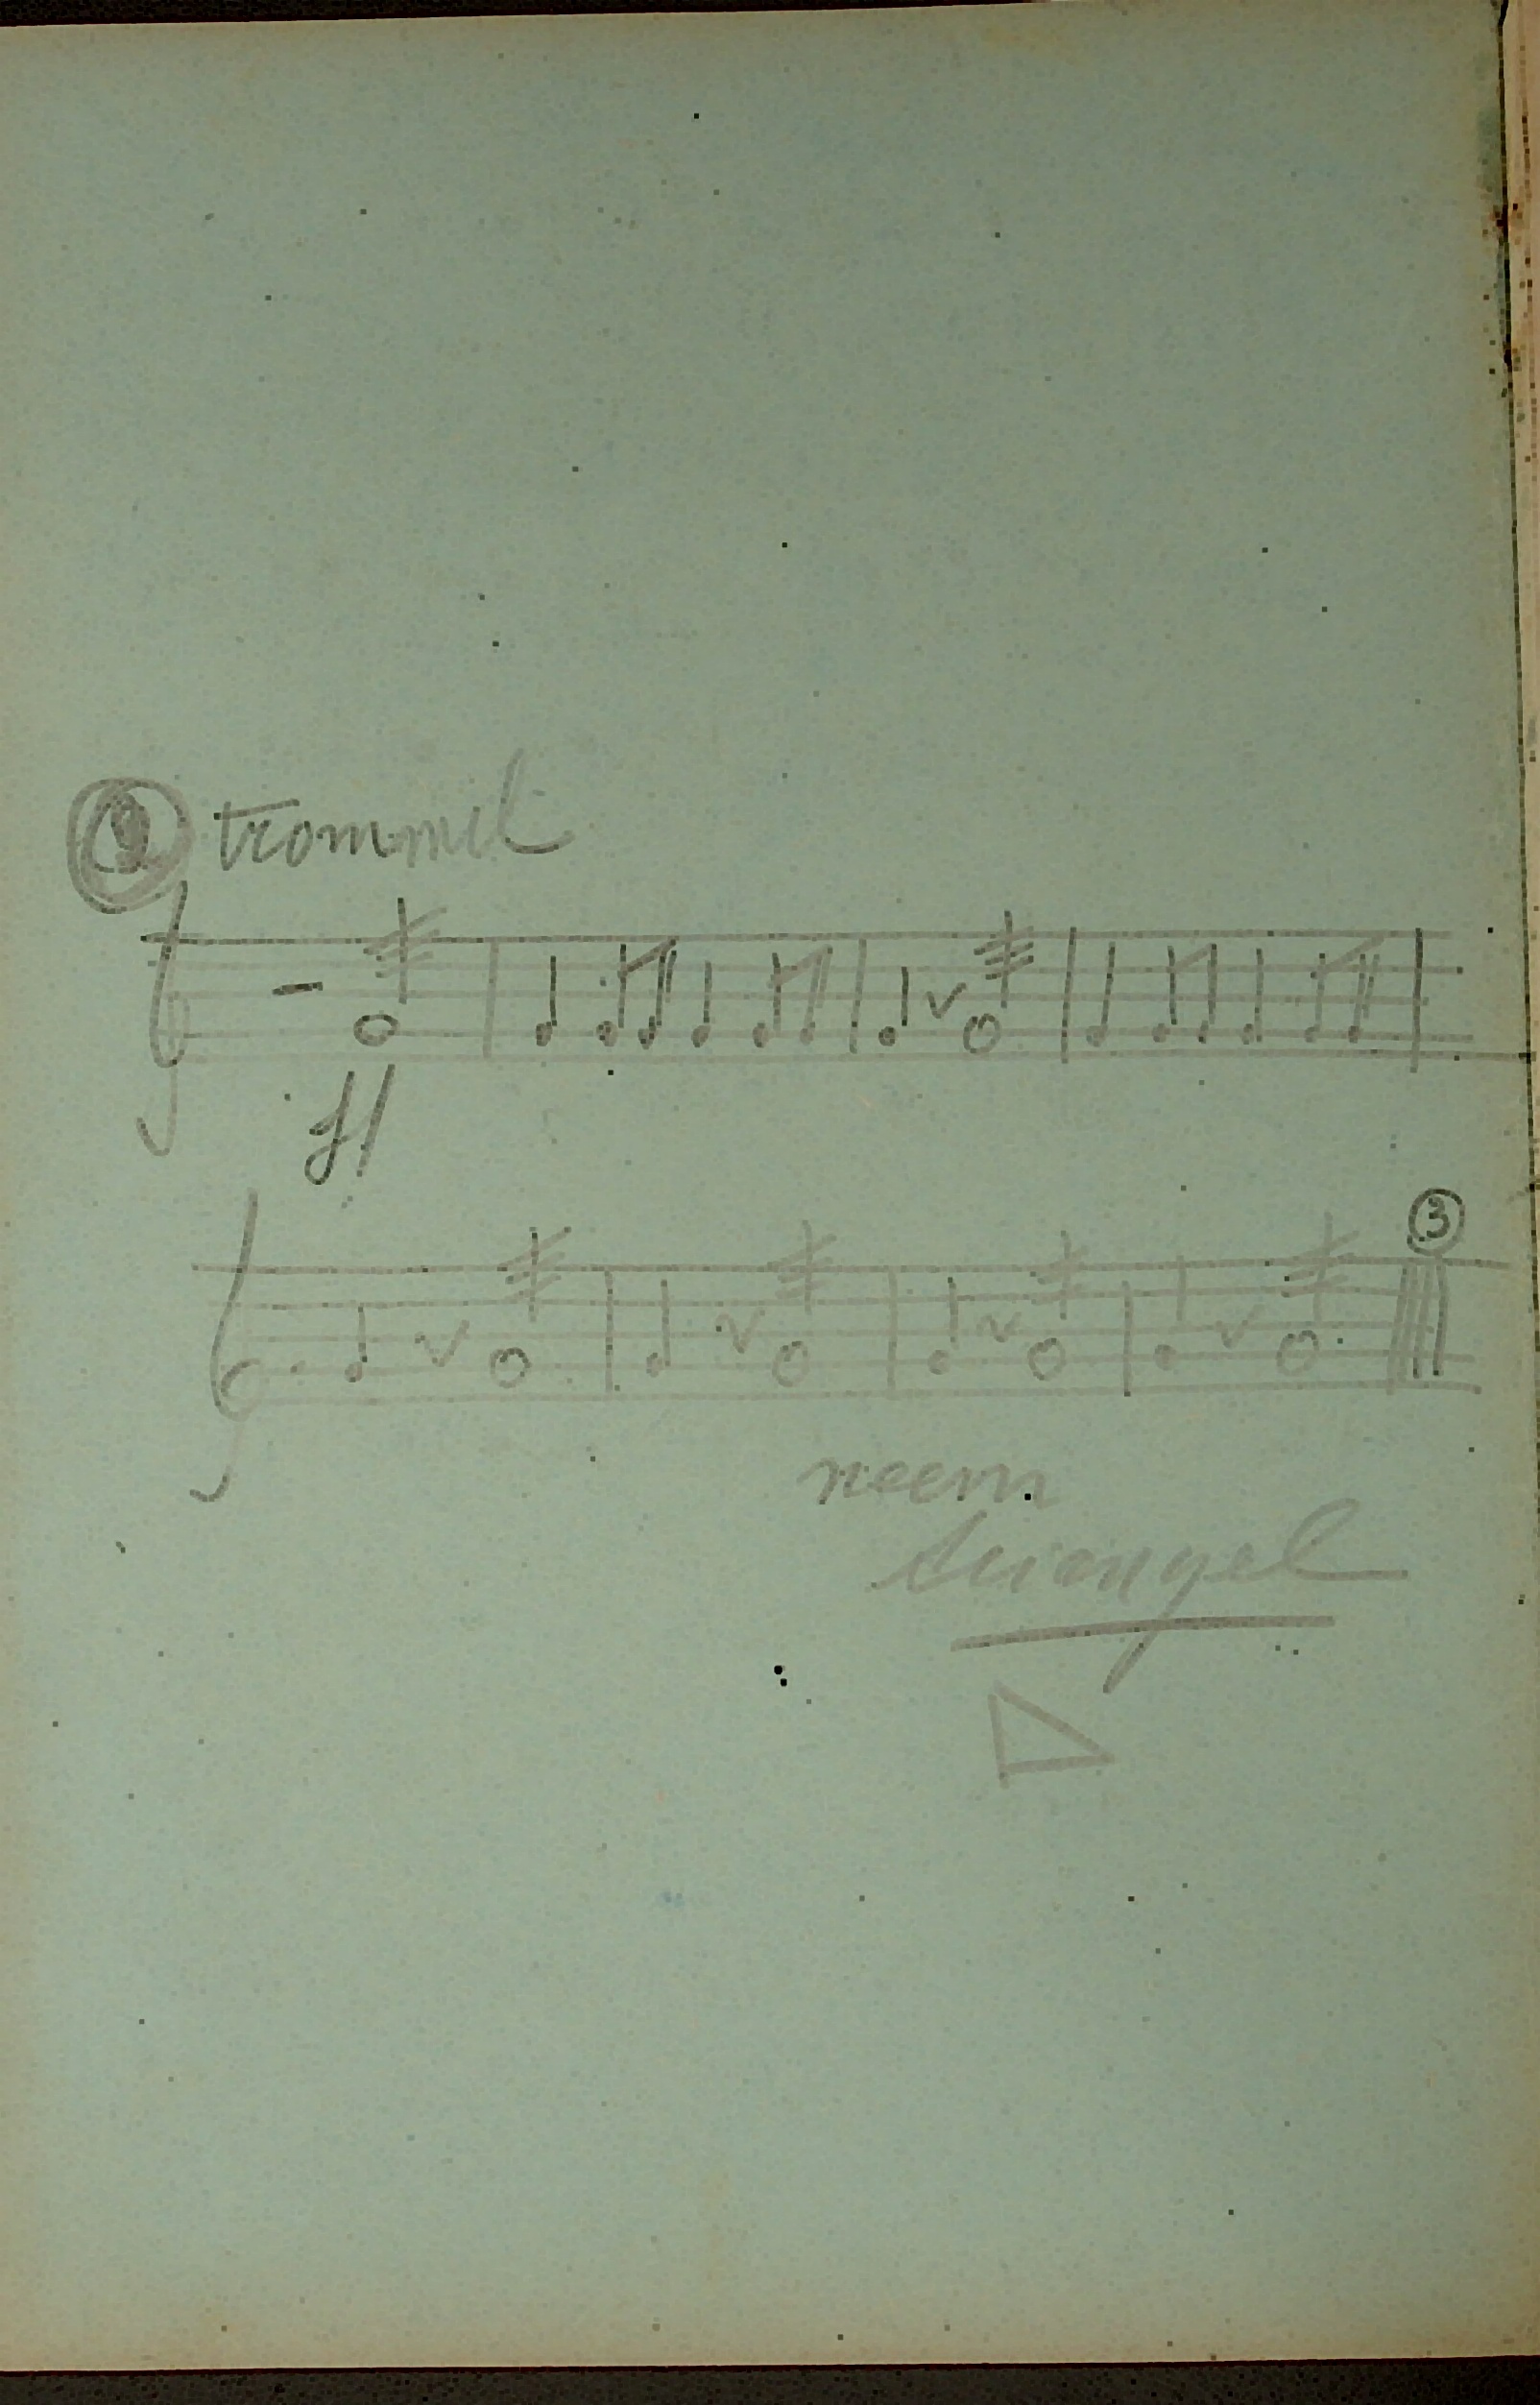 ② trommel
ff
③
neem
triangel